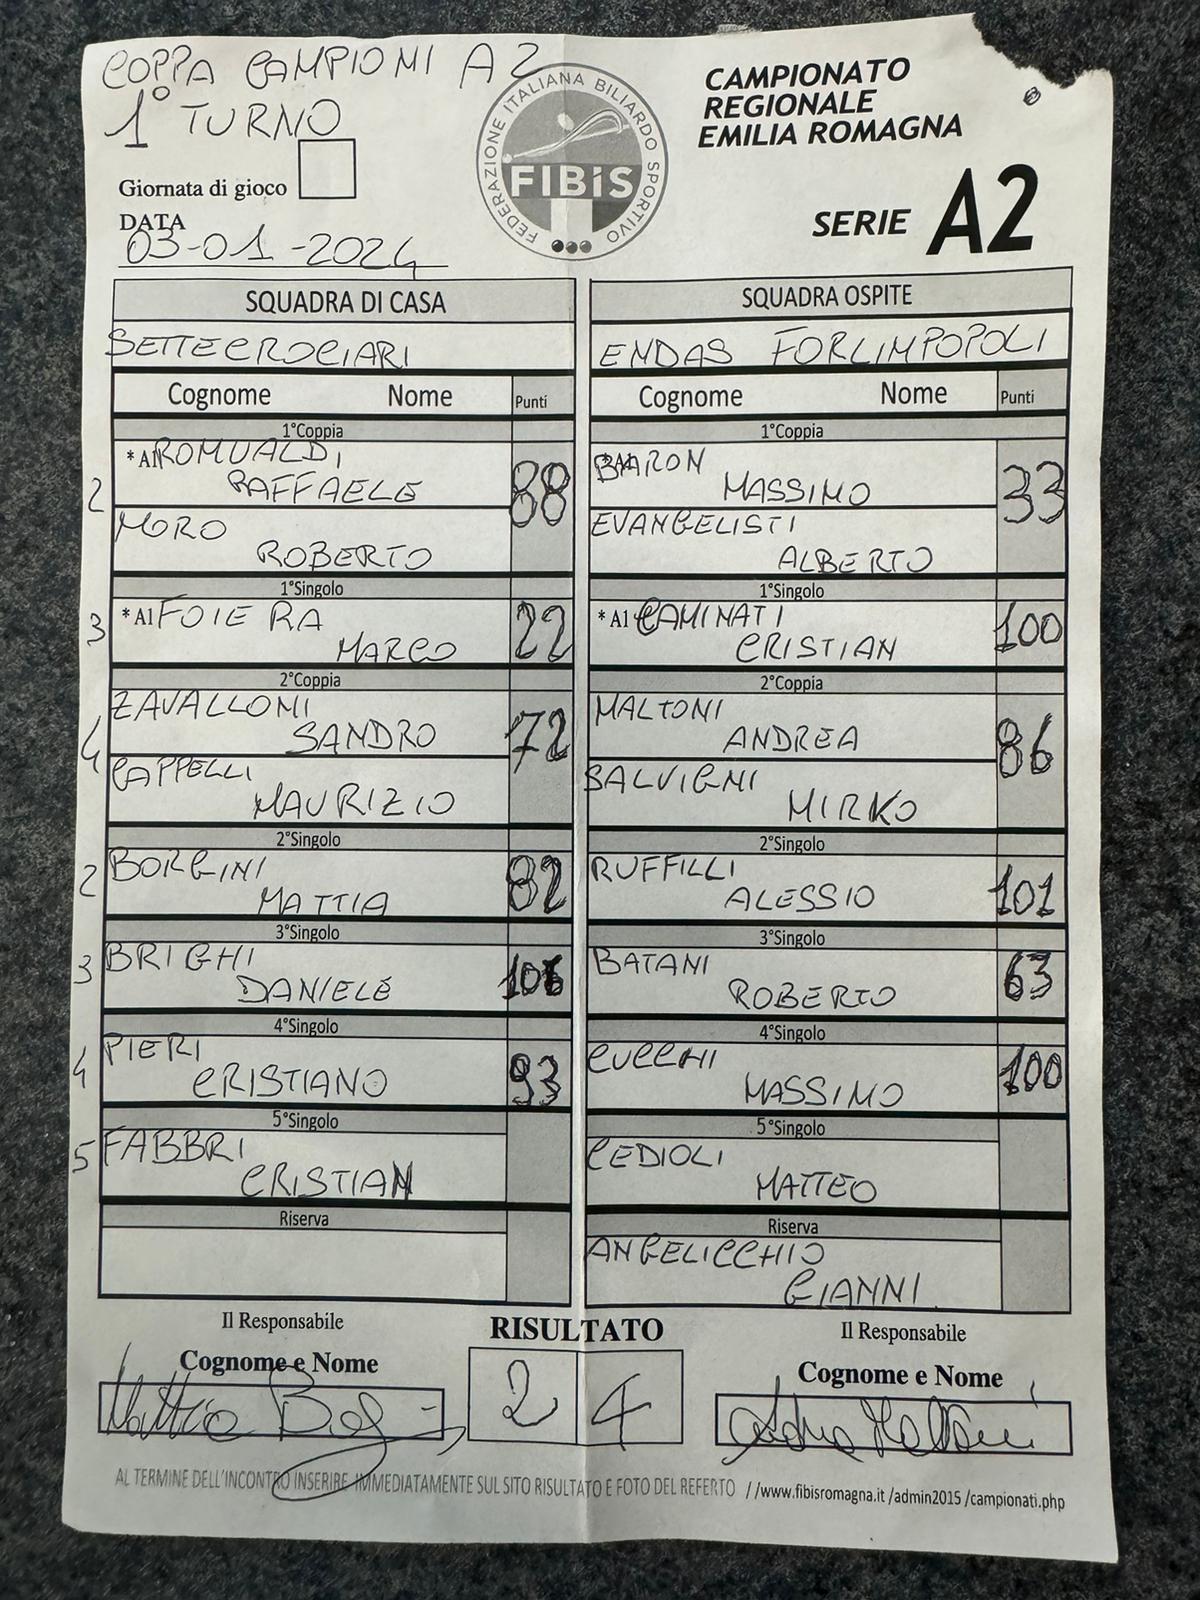 COPPA CAMPIONI A2
1° TURNO
Giornata di gioco
DATA
03-01-2024
FEDERAZIONE ITALIANA BILIARDO SPORTIVO
FIBiS
CAMPIONATO
REGIONALE
EMILIA ROMAGNA
SERIE A2
SQUADRA DI CASA SQUADRA OSPITE
SETTECROCIARI ENDAS FORLIMPOPOLI
Cognome Nome Punti Cognome Nome Punti
1°Coppia 1°Coppia
*A1 ROMUALDI *A1 BARON
2 RAFFAELE 88 MASSIMO 33
MORO EVANGELISTI
ROBERTO ALBERTO
1°Singolo 1°Singolo
3 *A1 FOIERA 22 *A1 CAMINATI 100
MARCO CRISTIAN
2°Coppia 2°Coppia
ZAVALLONI MALTONI
4 SANDRO 72 ANDREA 86
CAPPELLI SALVIGNI
MAURIZIO MIRKO
2°Singolo 2°Singolo
2 BORGINI 82 RUFFILLI 101
MATTIA ALESSIO
3°Singolo 3°Singolo
3 BRIGHI BATANI 63
DANIELE ROBERTO
4°Singolo 4°Singolo
4 PIERI 93 CUCCHI 100
CRISTIANO MASSIMO
5°Singolo 5°Singolo
5 FABBRI CEDIOLI
CRISTIAN MATTEO
Riserva Riserva
ANGELICCHIO
GIANNI
Il Responsabile RISULTATO Il Responsabile
Cognome e Nome 2 4 Cognome e Nome
AL TERMINE DELL'INCONTRO INSERIRE IMMEDIATAMENTE SUL SITO RISULTATO E FOTO DEL REFERTO //www.fibisromagna.it /admin2015 /campionati.php